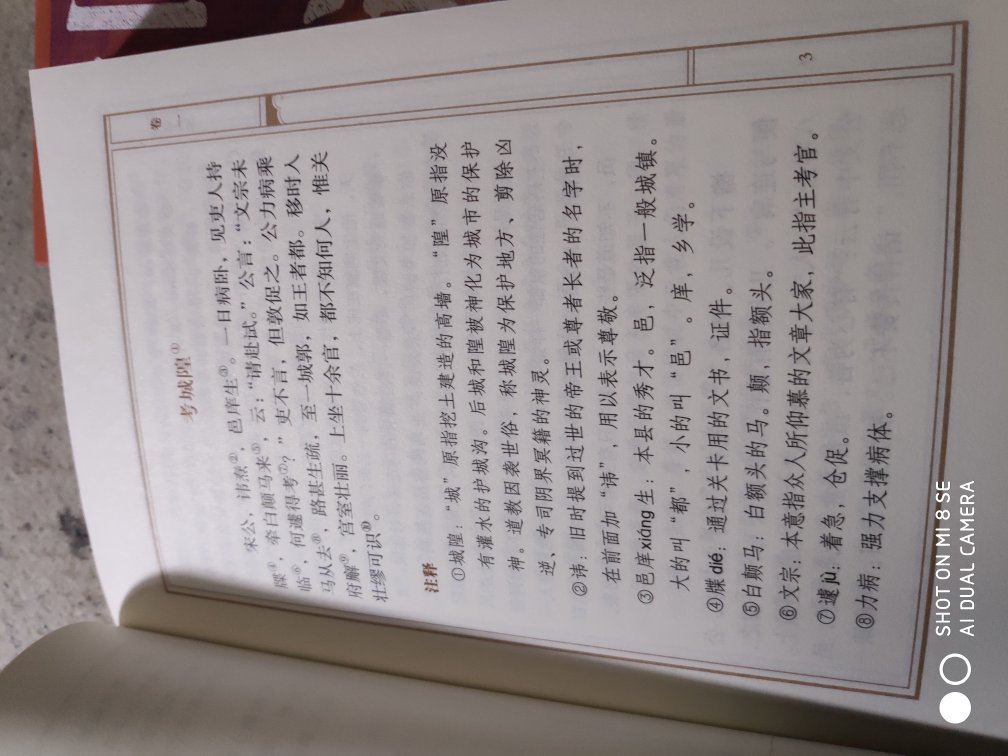 卷一
考城隍①
宋公，讳焘②，邑庠生③。一日病卧，见吏人持
牒④，牵白颠马来⑤，云：“请赴试。”公言：“文宗未
临⑥，何遽得考⑦？”吏不言，但敦促之。公力病乘
马从去⑧，路甚生疏，至一城郭，如王者都。移时入
府廨⑨，宫室壮丽。上坐十余官，都不知何人，惟关
壮缪可识⑩。
注释
①城隍：“城”原指挖土建造的高墙。“隍”原指没
有灌水的护城沟。后城和隍被神化为城市的保护
神。道教因袭世俗，称城隍为保护地方、剪除凶
逆、专司阴界冥籍的神灵。
②讳：旧时提到过世的帝王或尊者长者的名字时，
在前面加“讳”，用以表示尊敬。
③邑庠xiáng生：本县的秀才。邑，泛指一般城镇。
大的叫“都”，小的叫“邑”。庠，乡学。
④牒dié：通过关卡用的文书，证件。
⑤白颠马：白额头的马。颠，指额头。
⑥文宗：本意指众人所仰慕的文章大家，此指主考官。
⑦遽jù：着急，仓促。
⑧力病：强力支撑病体。
3
SHOT ON MI 8 SE
AI DUAL CAMERA